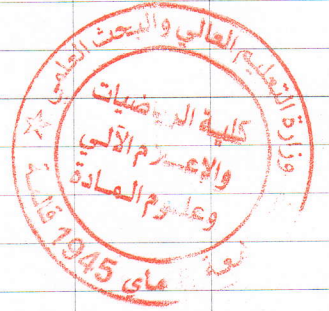 وزارة التعليم العالي والبحث العلمي
كلية الرياضيات
والإعلام الآلي
وعلوم المادة
ماي 1945 قالمة